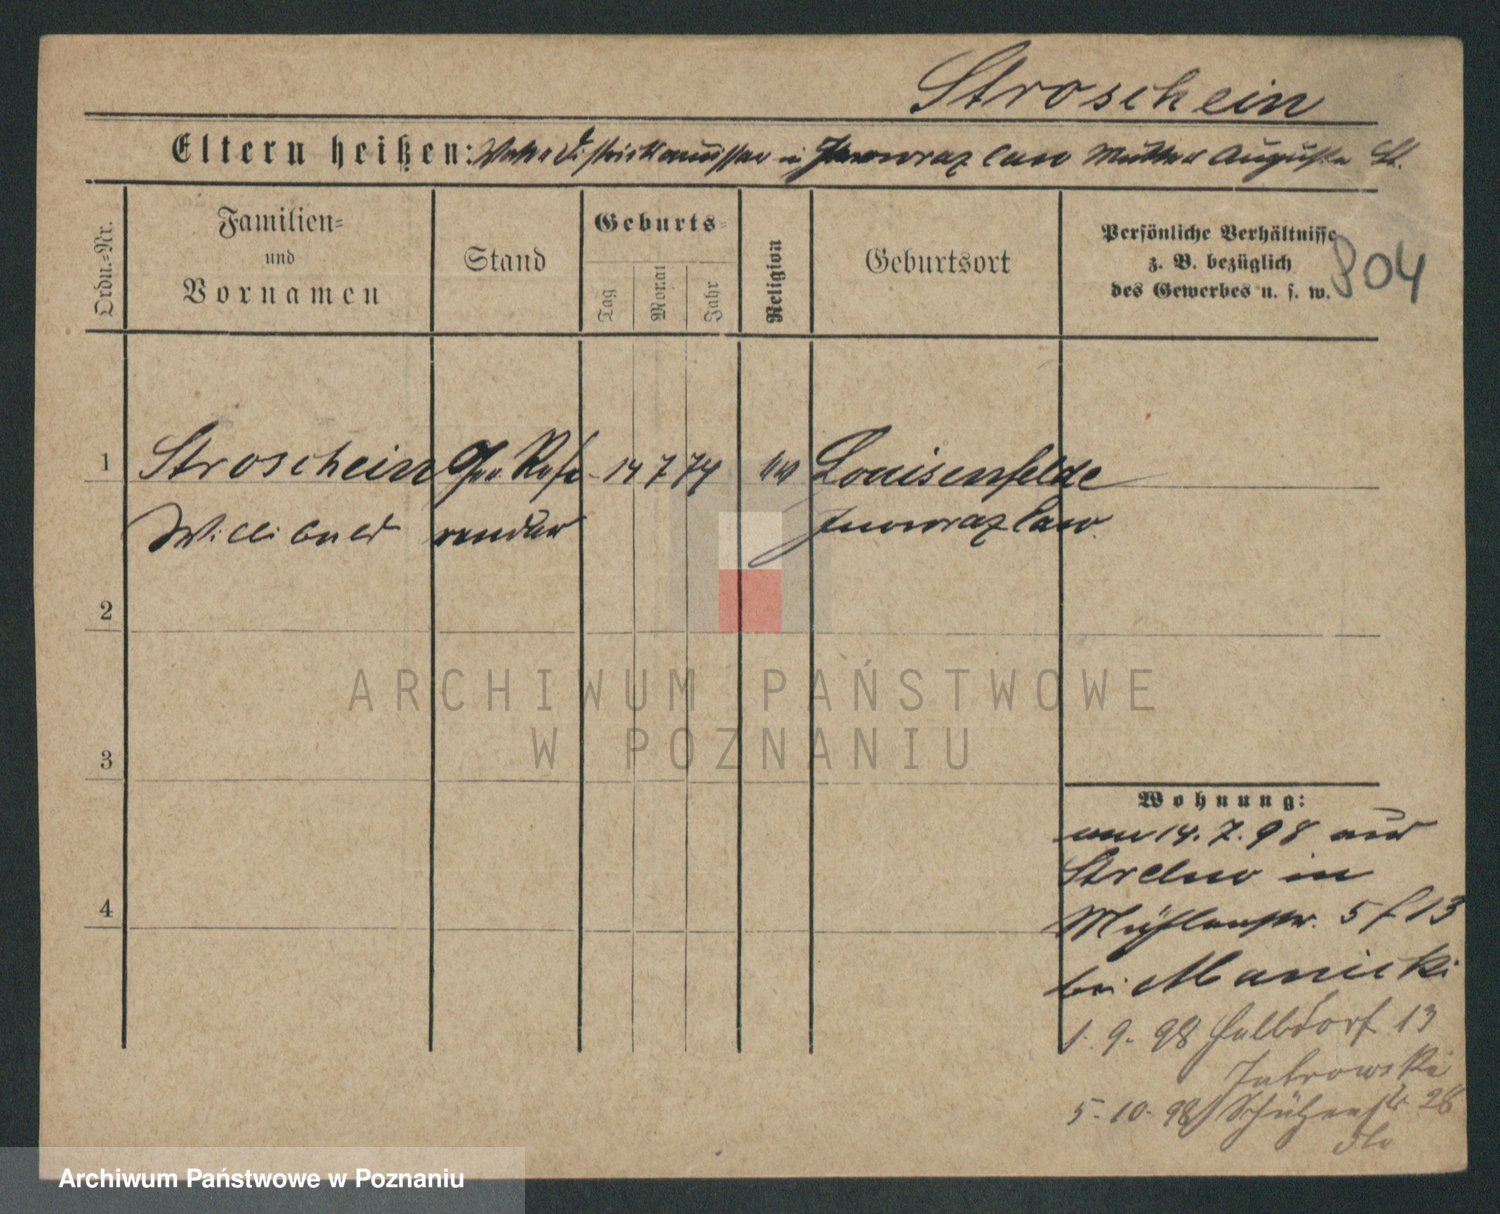 Stroschein
Eltern heißen: Vater Distriktkommissar in Inowrazlaw Mutter Auguste St.
Ordn.-Nr.
Familien-
und
Vornamen
Stand
Geburts-
Tag
Monat
Jahr
Religion
Geburtsort
Persönliche Verhältnisse
z. B. bezüglich
des Gewerbes u. s. w.
804
1 Stroschein Ger. Refe- 14 7 74 Louisenfelde
Willibald rendar Inowrazlaw.
2
3
4
Wohnung:
am 14. 7. 98 aus
Strelno in
Mühlenstr. 5 f 13
bei Manicki
1. 9. 98 Halbdorf 13
5. 10. 98 Schützenstr 28
ARCHIWUM PAŃSTWOWE
W POZNANIU
Archiwum Państwowe w Poznaniu